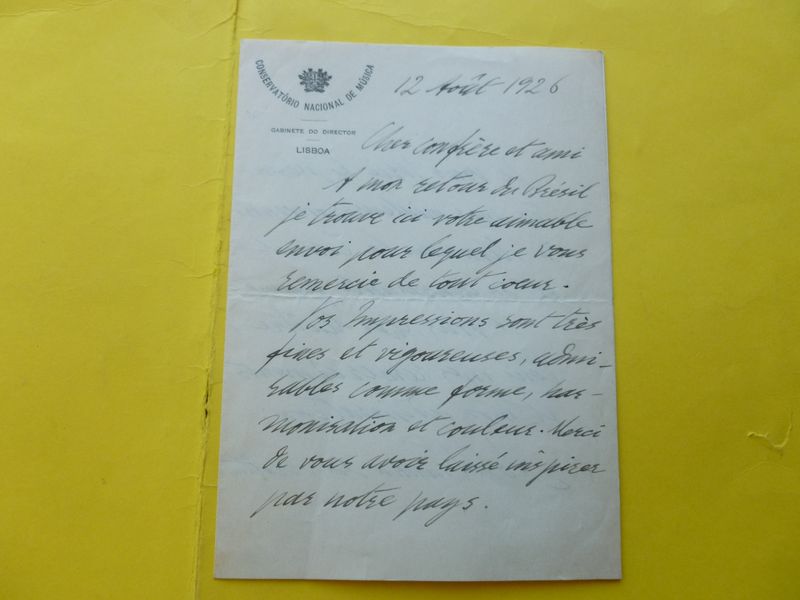 CONSERVATÓRIO NACIONAL DE MÚSICA
GABINETE DO DIRECTOR
LISBOA
12 Août 1926
Cher confrère et ami
A mon retour du Brésil
je trouve ici votre aimable
envoi pour lequel je vous
remercie de tout coeur.
Vos Impressions sont très
fines et vigoureuses, admi-
rables comme forme, har-
monisation et couleur. Merci
de vous avoir laissé inspirer
par notre pays.